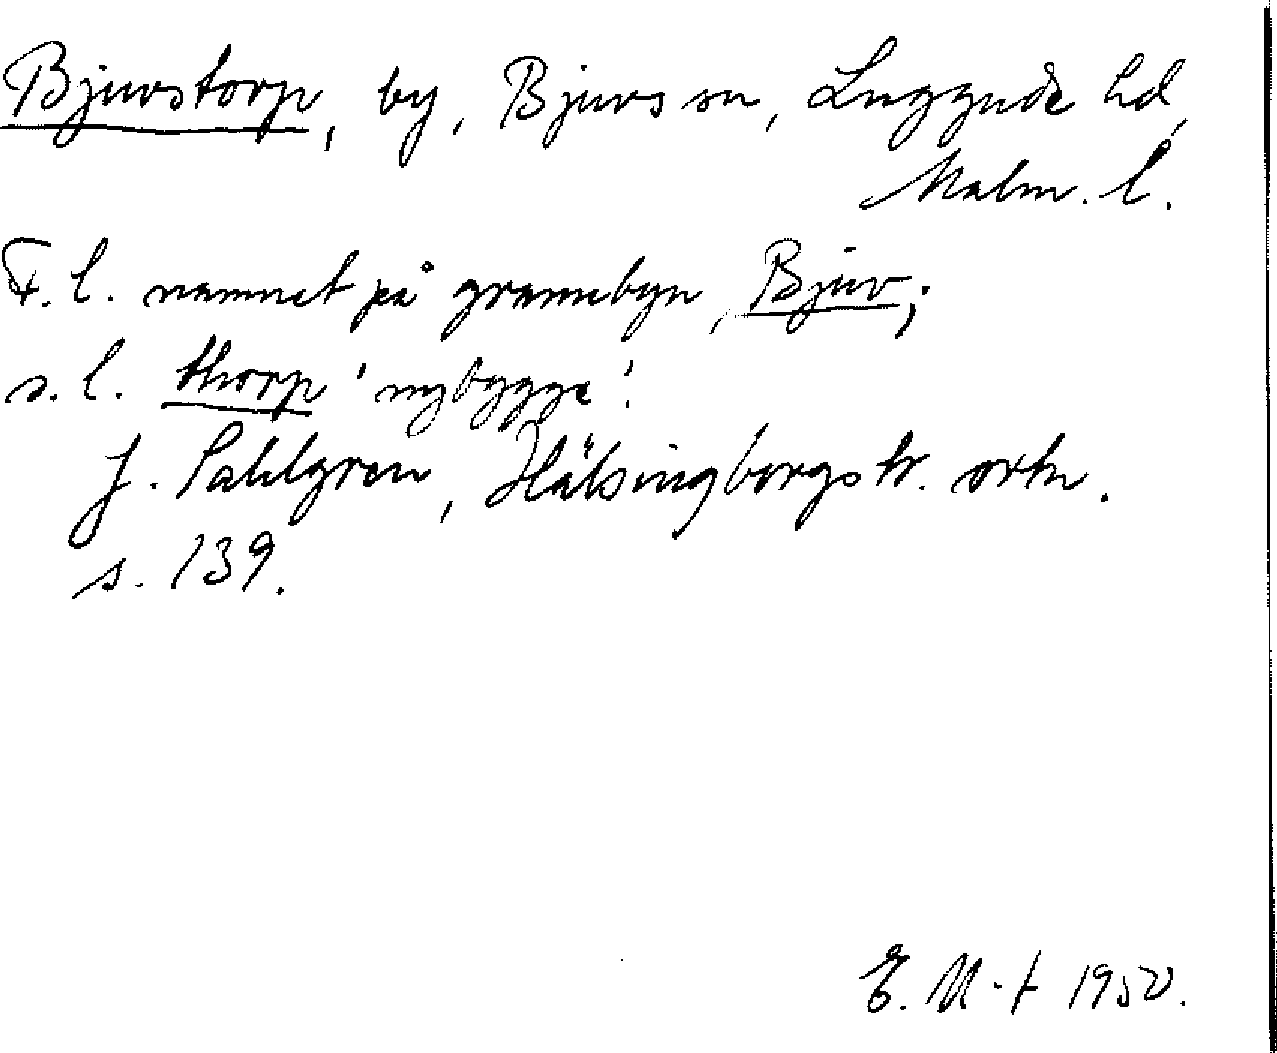 Bjuvstorp, by, Bjuvs sn, Luggude hd,
Malm. l.
F. l. namnet på grannebyn, Bjuv;
s. l. thorp 'nybygge'.
J. Sahlgren, Hälsingborgstr. ortn.
s. 139.
E. M-t 1950.